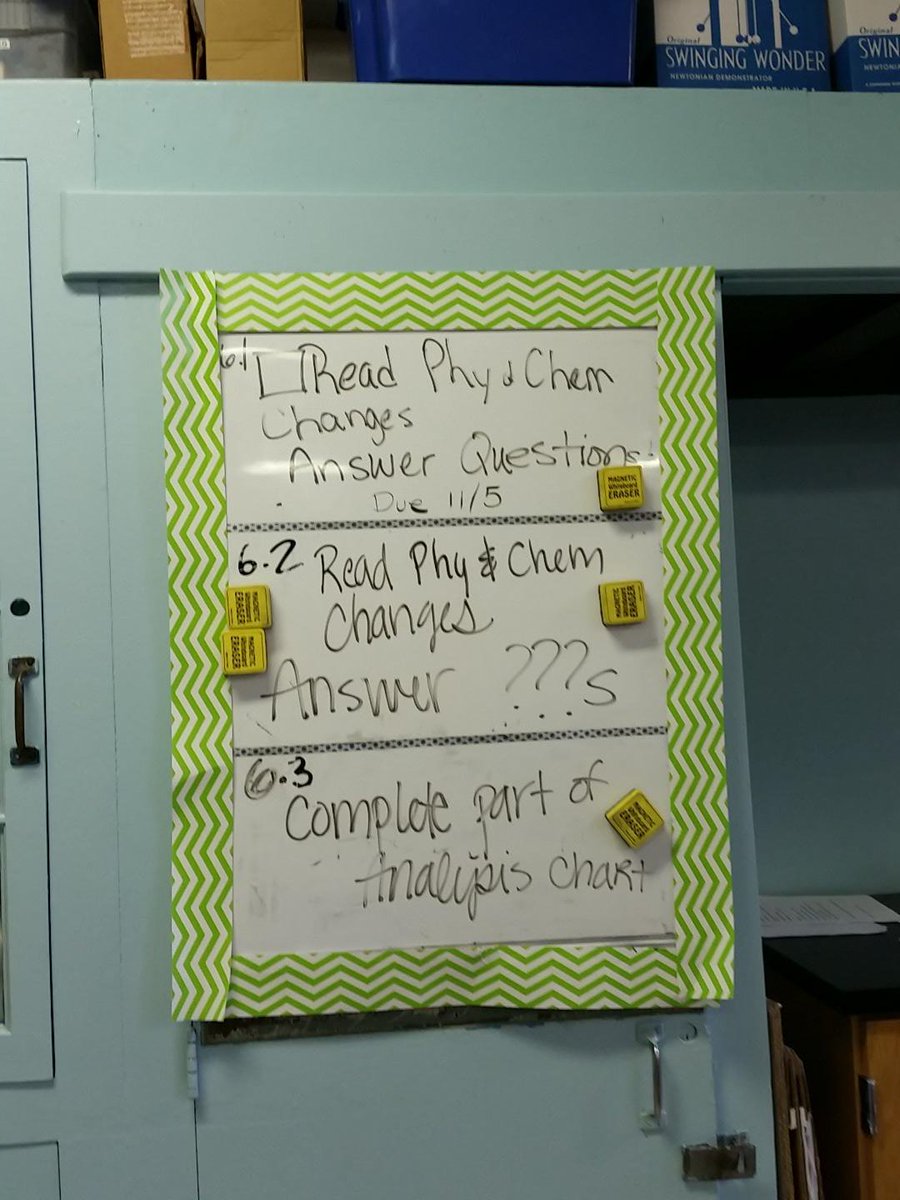 Original
SWINGING WONDER
NEWTONIAN DEMONSTRATOR
MADE IN U.S.A.
Original
SWIN
NEWTONI
6.1 Read Phy & Chem
Changes
Answer Questions
Due 11/5
MAGNETIC
Whiteboard
ERASER
6.2 Read Phy & Chem
Changes
Answer ???s
MAGNETIC
Whiteboard
ERASER
MAGNETIC
Whiteboard
ERASER
MAGNETIC
Whiteboard
ERASER
6.3
Complete part of
Analysis Chart
MAGNETIC
Whiteboard
ERASER